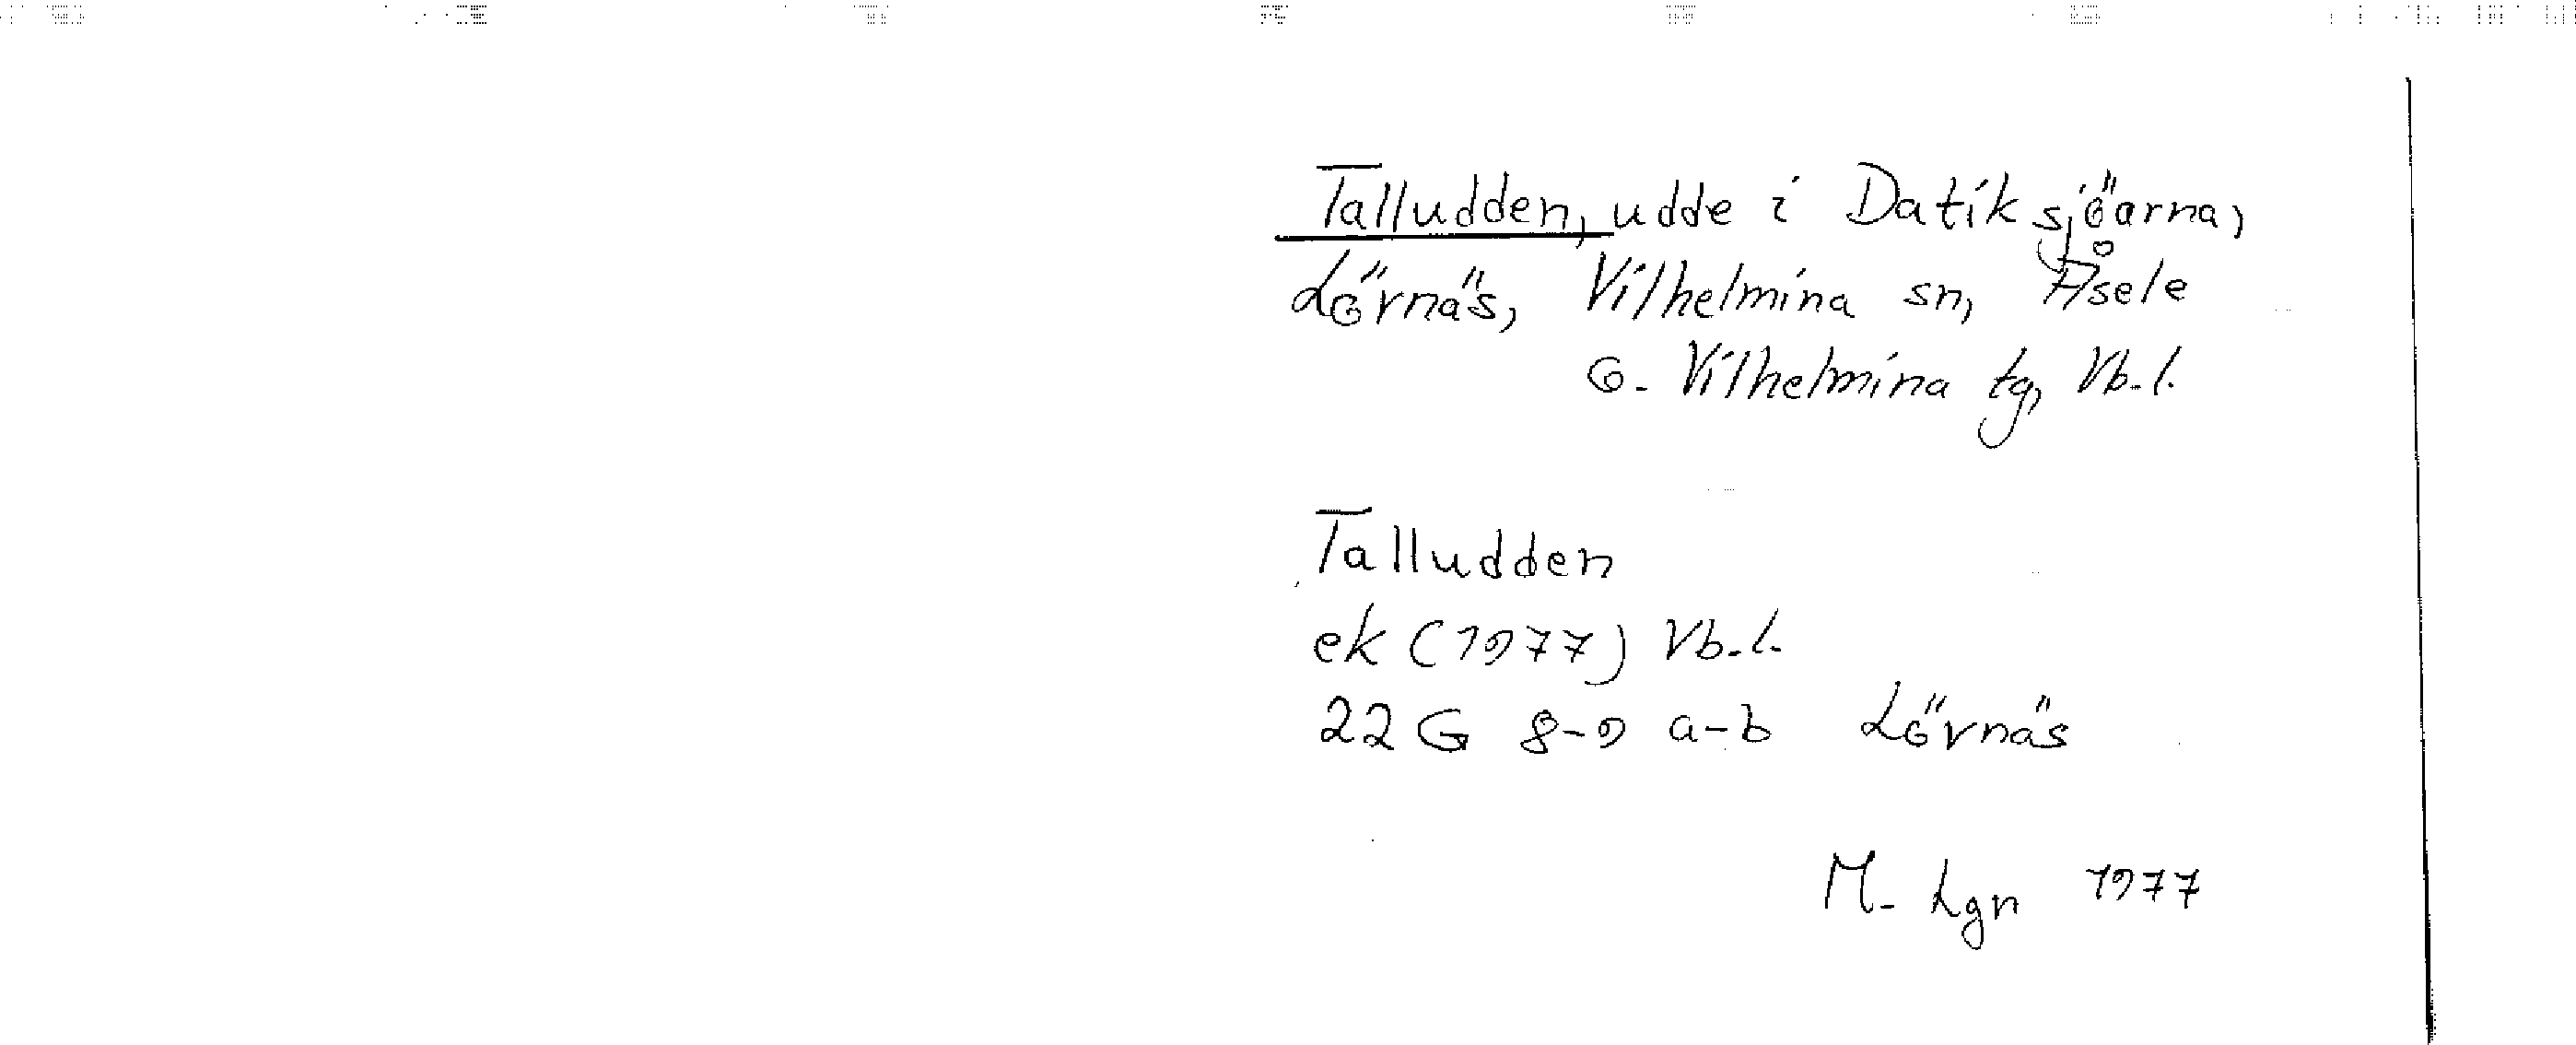 Talludden, udde i Datiksjöarna,
Lövnäs, Vilhelmina sn, Åsele
o. Vilhelmina tg, Vb. l.
Talludden
ek (1977) Vb. l.
22 G 8-9 a-b Lövnäs
M. Lgn 1977